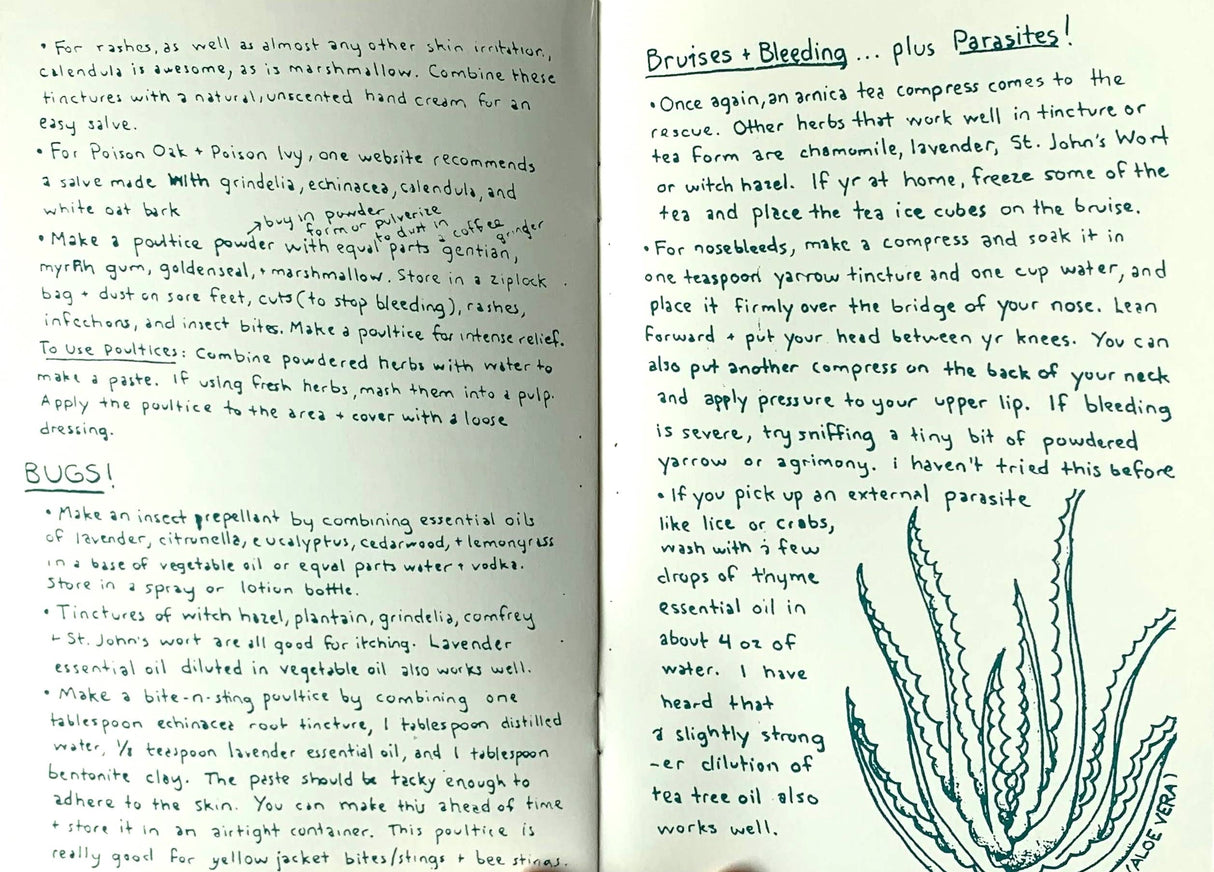 • For rashes, as well as almost any other skin irritation,
calendula is awesome, as is marshmallow. Combine these
tinctures with a natural, unscented hand cream for an
easy salve.
• For Poison Oak + Poison Ivy, one website recommends
a salve made with grindelia, echinacea, calendula, and
white oat bark
→ buy in powder
form or pulverize
to dust in a coffee grinder
• Make a poultice powder with equal parts gentian,
myrrh gum, goldenseal, + marshmallow. Store in a ziplock
bag + dust on sore feet, cuts (to stop bleeding), rashes,
infections, and insect bites. Make a poultice for intense relief.
To Use Poultices: Combine powdered herbs with water to
make a paste. If using fresh herbs, mash them into a pulp.
Apply the poultice to the area + cover with a loose
dressing.
BUGS!
• Make an insect repellant by combining essential oils
of lavender, citronella, eucalyptus, cedarwood, + lemongrass
in a base of vegetable oil or equal parts water + vodka.
Store in a spray or lotion bottle.
• Tinctures of witch hazel, plantain, grindelia, comfrey
+ St. John's wort are all good for itching. Lavender
essential oil diluted in vegetable oil also works well.
• Make a bite-n-sting poultice by combining one
tablespoon echinacea root tincture, 1 tablespoon distilled
water, 1/8 teaspoon lavender essential oil, and 1 tablespoon
bentonite clay. The paste should be tacky enough to
adhere to the skin. You can make this ahead of time
+ store it in an airtight container. This poultice is
really good for yellow jacket bites/stings + bee stings.
Bruises + Bleeding ... plus Parasites!
• Once again, an arnica tea compress comes to the
rescue. Other herbs that work well in tincture or
tea form are chamomile, lavender, St. John's Wort
or witch hazel. If yr at home, freeze some of the
tea and place the tea ice cubes on the bruise.
• For nosebleeds, make a compress and soak it in
one teaspoon yarrow tincture and one cup water, and
place it firmly over the bridge of your nose. Lean
forward + put your head between yr knees. You can
also put another compress on the back of your neck
and apply pressure to your upper lip. If bleeding
is severe, try sniffing a tiny bit of powdered
yarrow or agrimony. i haven't tried this before
• If you pick up an external parasite
like lice or crabs,
wash with a few
drops of thyme
essential oil in
about 4 oz of
water. I have
heard that
a slightly strong
-er dilution of
tea tree oil also
works well.
(ALOE VERA)